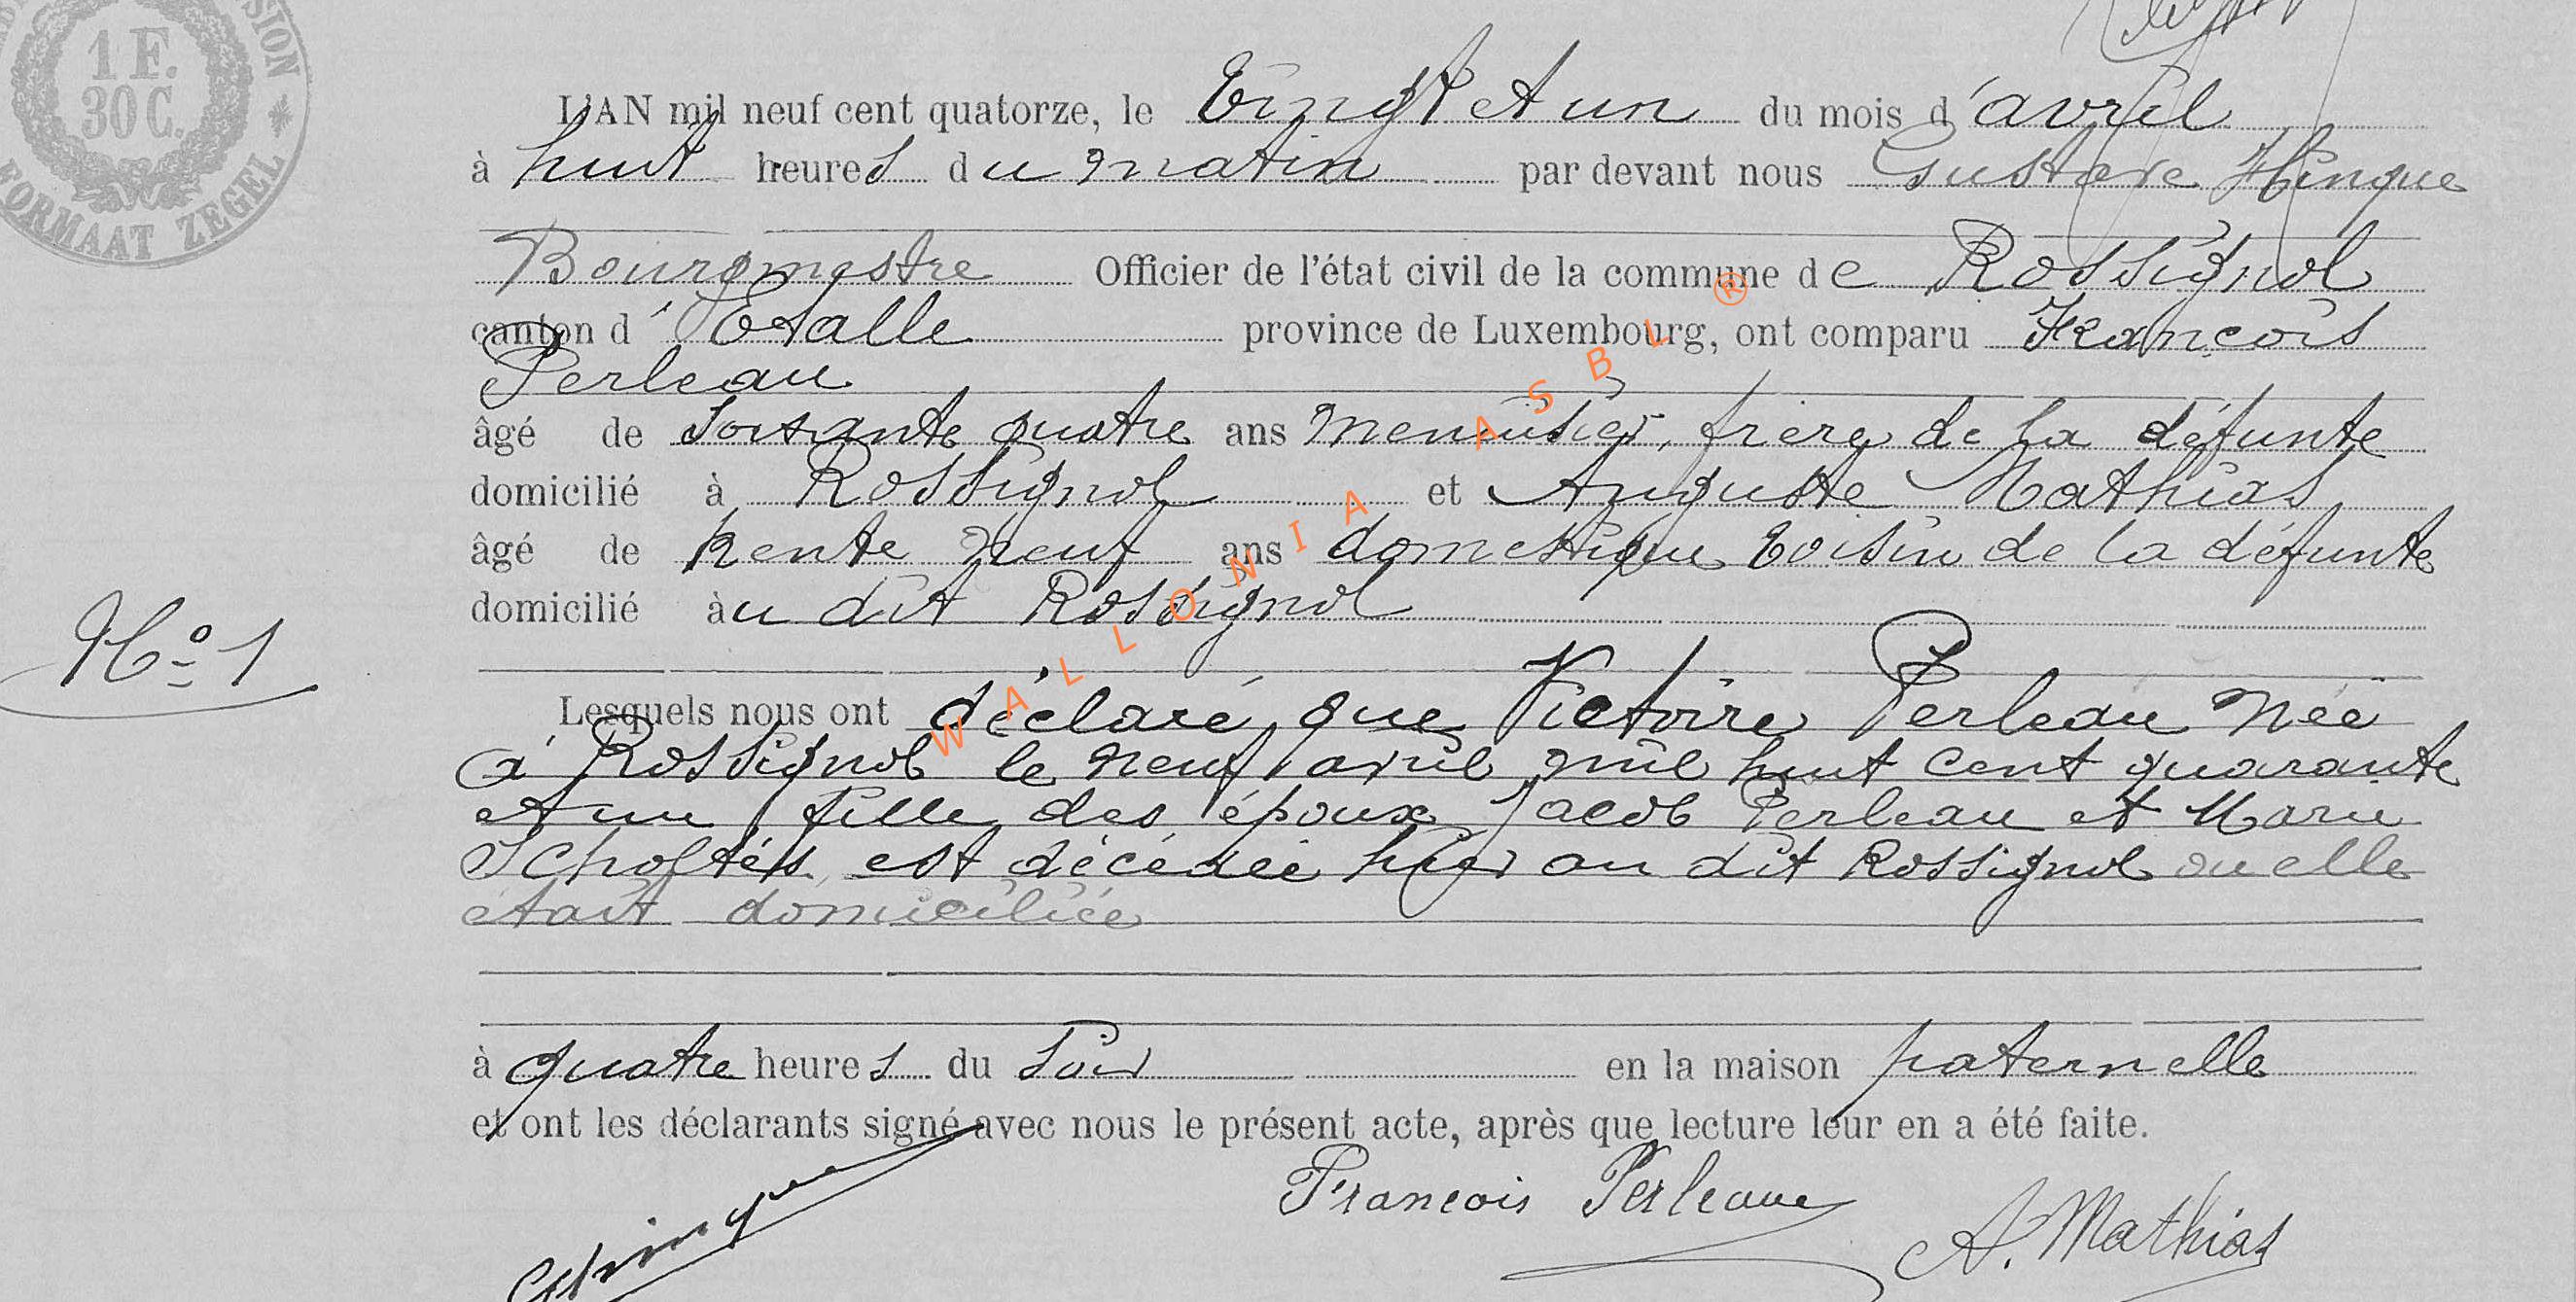 1 F.
30 C.
FORMAAT ZEGEL
L'AN mil neuf cent quatorze, le Vingt et un du mois d'avril
à huit heures du matin par devant nous Gustave Hinque
Bourgmestre Officier de l'état civil de la commune de Rossignol
canton d'Etalle province de Luxembourg, ont comparu François
Perleau
âgé de soixante quatre ans menuisier, frère de la défunte
domicilié à Rossignol et Auguste Mathias
âgé de trente neuf ans domestique voisin de la défunte
domicilié àu dit Rossignol
No 1
Lesquels nous ont déclaré que Victoire Perleau née
à Rossignol le neuf avril mil huit cent quarante
et un fille des époux Jacob Perleau et Marie
Scholtès est décédée hier au dit Rossignol ou elle
était domiciliée
à quatre heures du soir en la maison paternelle
et ont les déclarants signé avec nous le présent acte, après que lecture leur en a été faite.
GHinque François Perleaux A. Mathias
WALLONIA ASBL ®